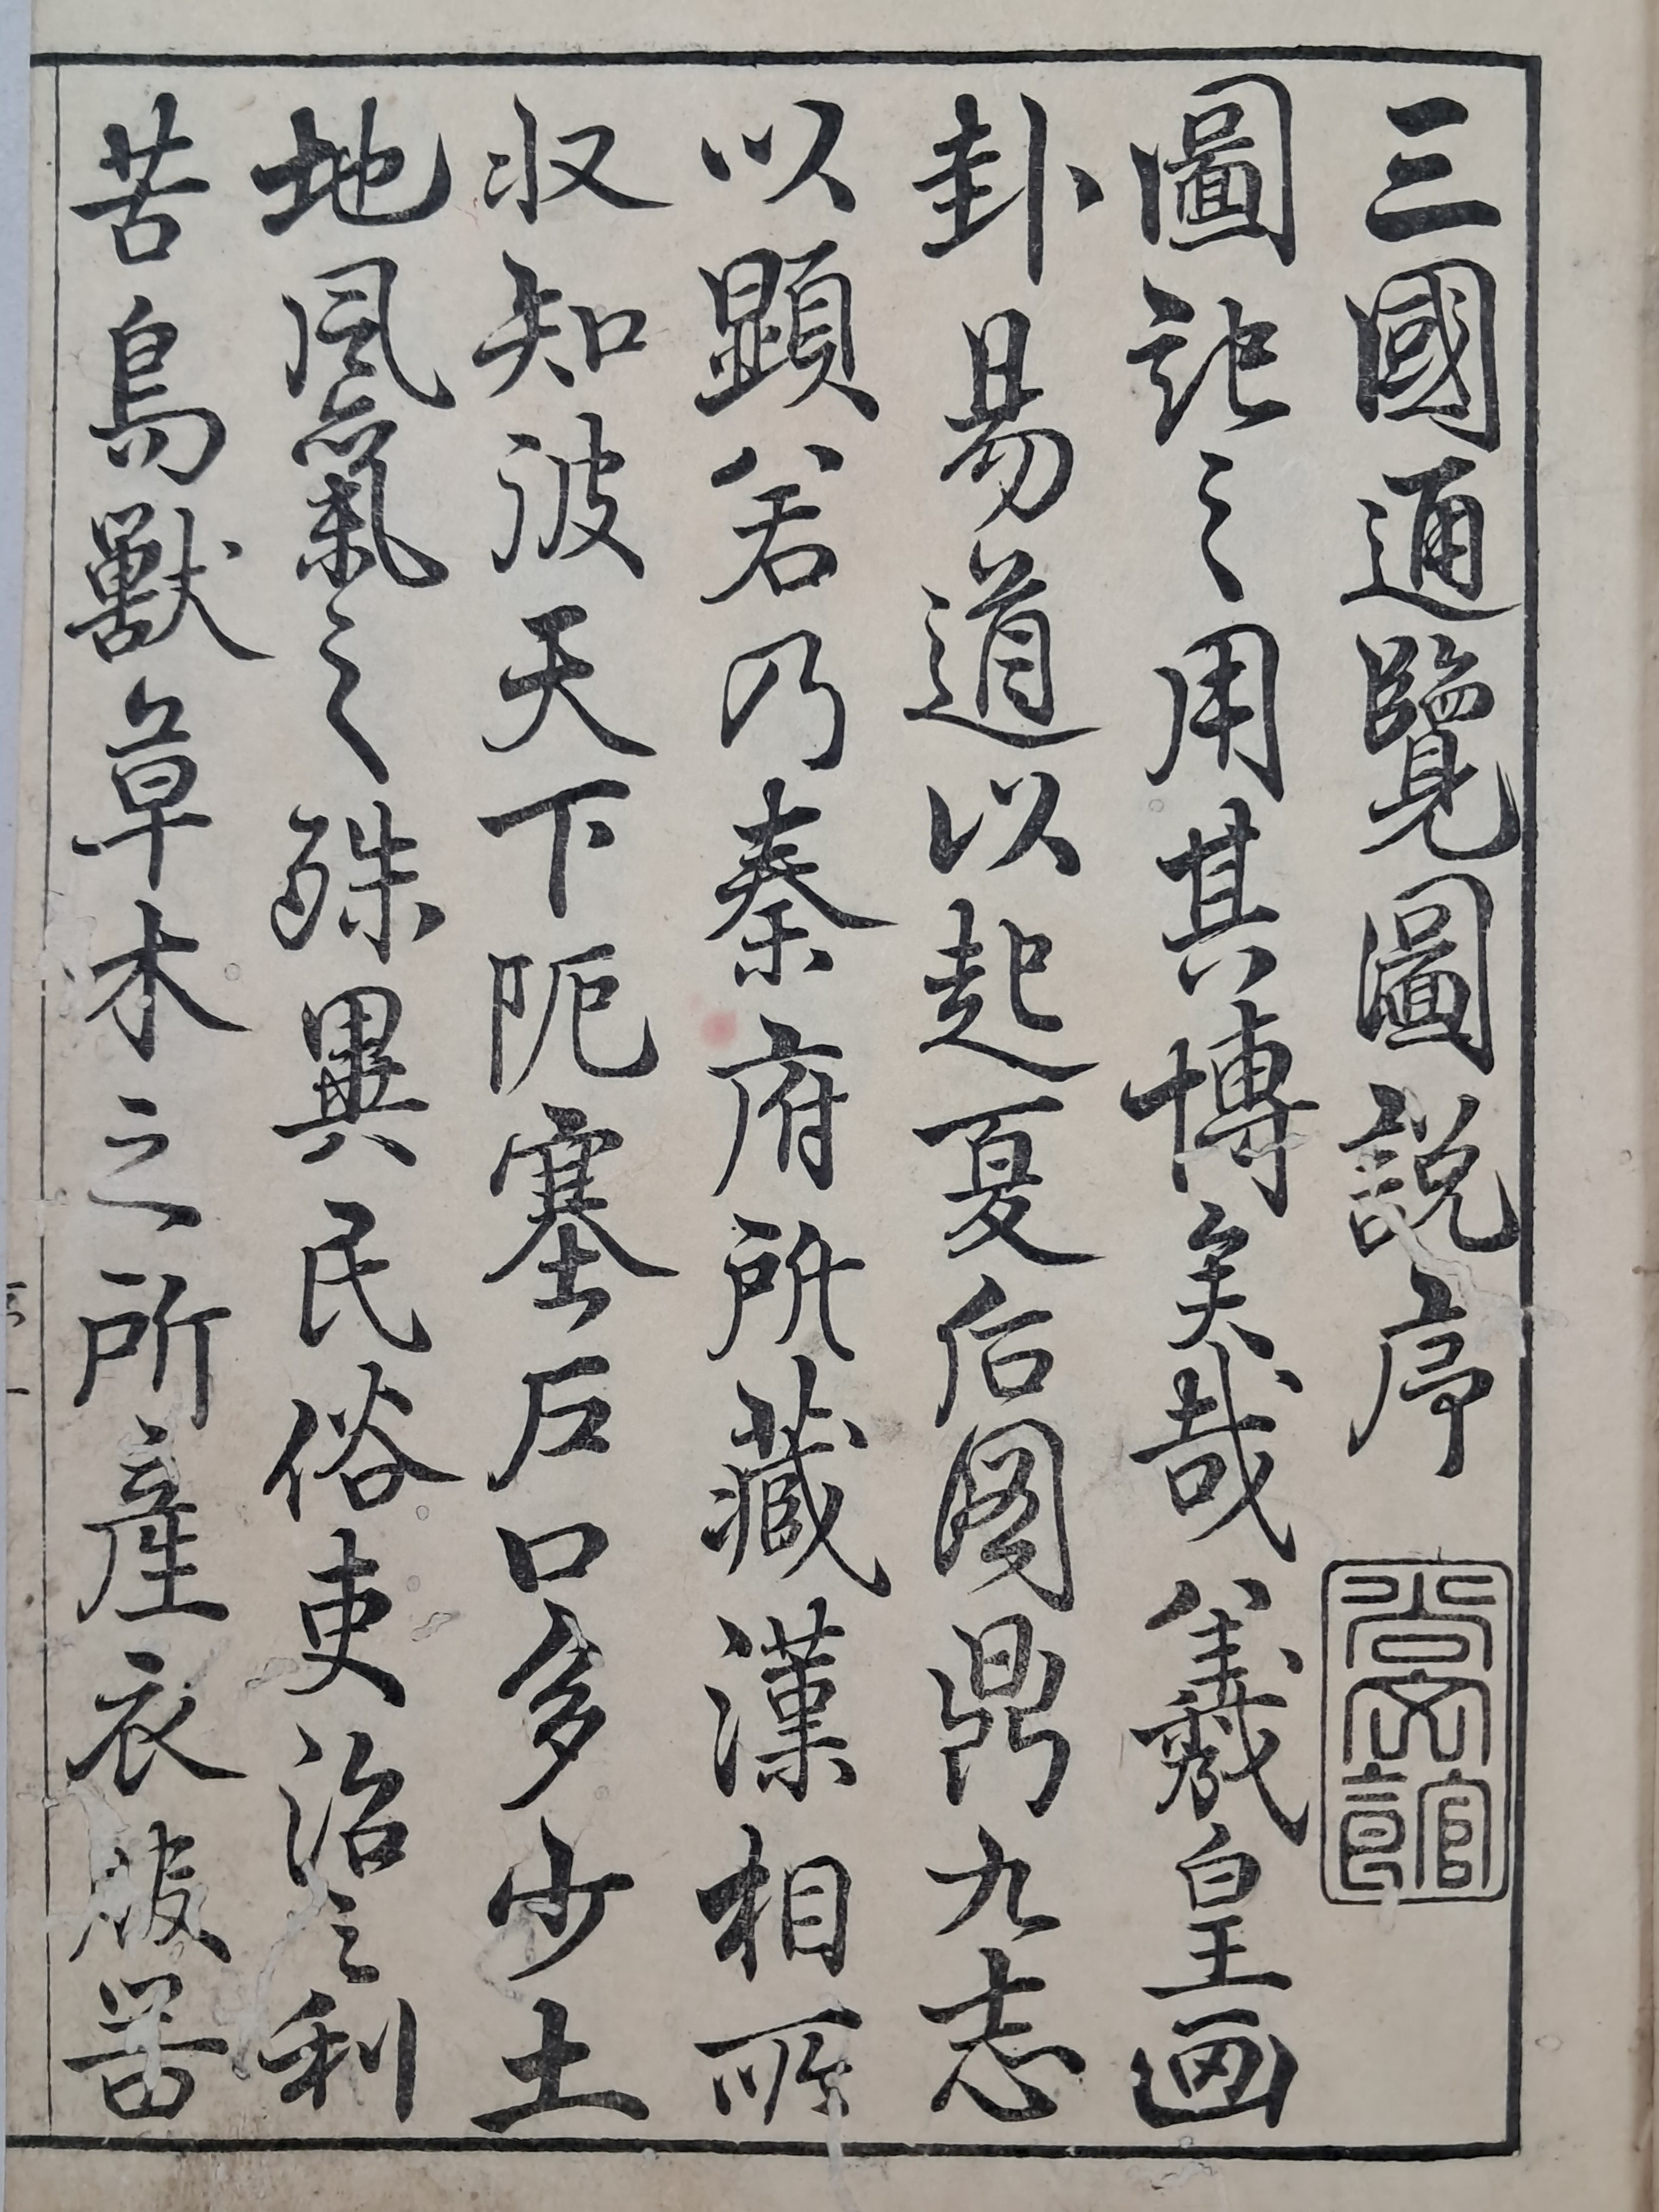 三國通覽圖説序
圖記之用其博矣哉羲皇画
卦易道以起夏后圖鼎九志
以顕若乃秦府所藏漢相所
収知彼天下阨塞戸口多少土
地風氣之殊異民俗吏治之利
苦鳥獸草木之所產衣服器